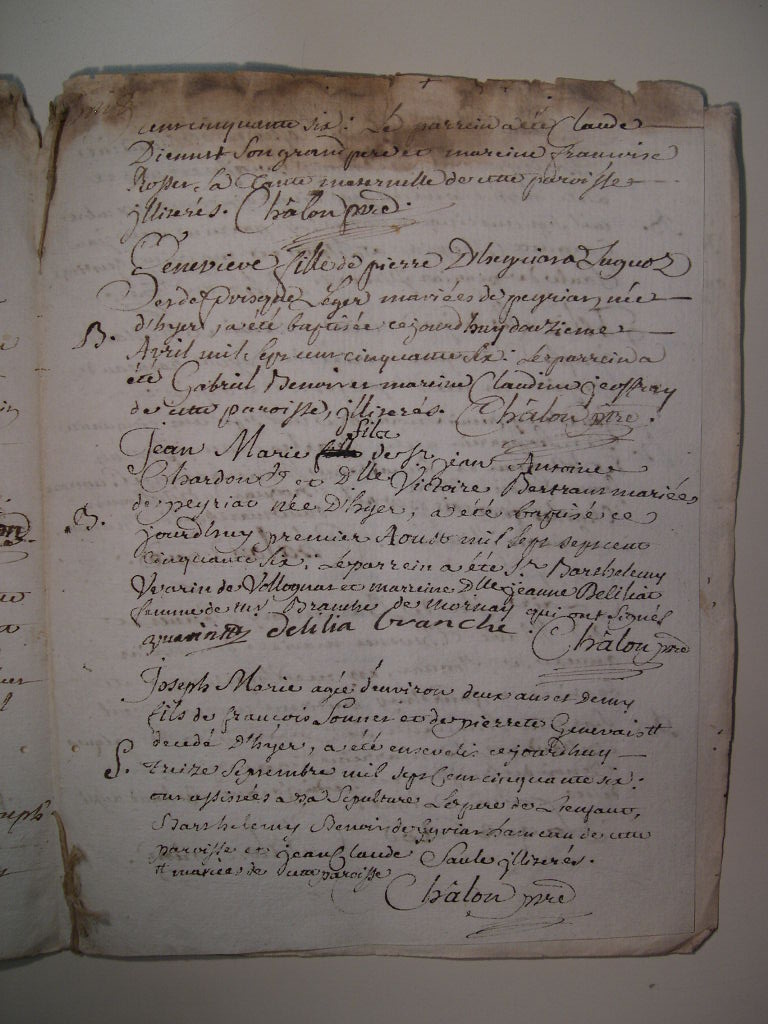 cent cinquante six: Le parrein a été Claude
Diennet son grand pere et mareine françoise
Rosset la tante maternelle de cette paroisse
illiterés. Châlon prê.
Genevieve fille de pierre
Léger mariées de peyriat, née
B. d'hyer, a été baptisée ce jourdhuy douzieme
Avril mil sept cent cinquante six: Le parrein a
été Gabriel Benoit et mareine Claudine jeoffray
de cette paroisse, illiterés. Châlon prê.
Jean Marie fils de Sr. jean Antoine
Chardon et Dlle Victoire Bertrant mariées
B. de peyriat née D'hyer, a été baptisé ce
jourdhuy premier Aoust mil sept sept cent
cinquante six: Le parrein a été Sr Barthelemy
de Vollognat et marreine Dlle jeanne Delilia
femme de Mr Branche de mornay qui ont signés
delilia branche. Châlon prê
Joseph Marie agée d'environ deux ans et demy
fils de françois Sonnet et de pierrete Genevais #
decedé D'hyer, a été ensevelis ce jourdhuy
S. treize Septembre mil sept cent cinquante six:
ont assistées a sa Sepulture Le pere de L'enfant,
Barthelemy Benoit de hameau de cette
paroisse et jean Claude Saule illiterés.
# mariées de cette paroisse
Châlon prê